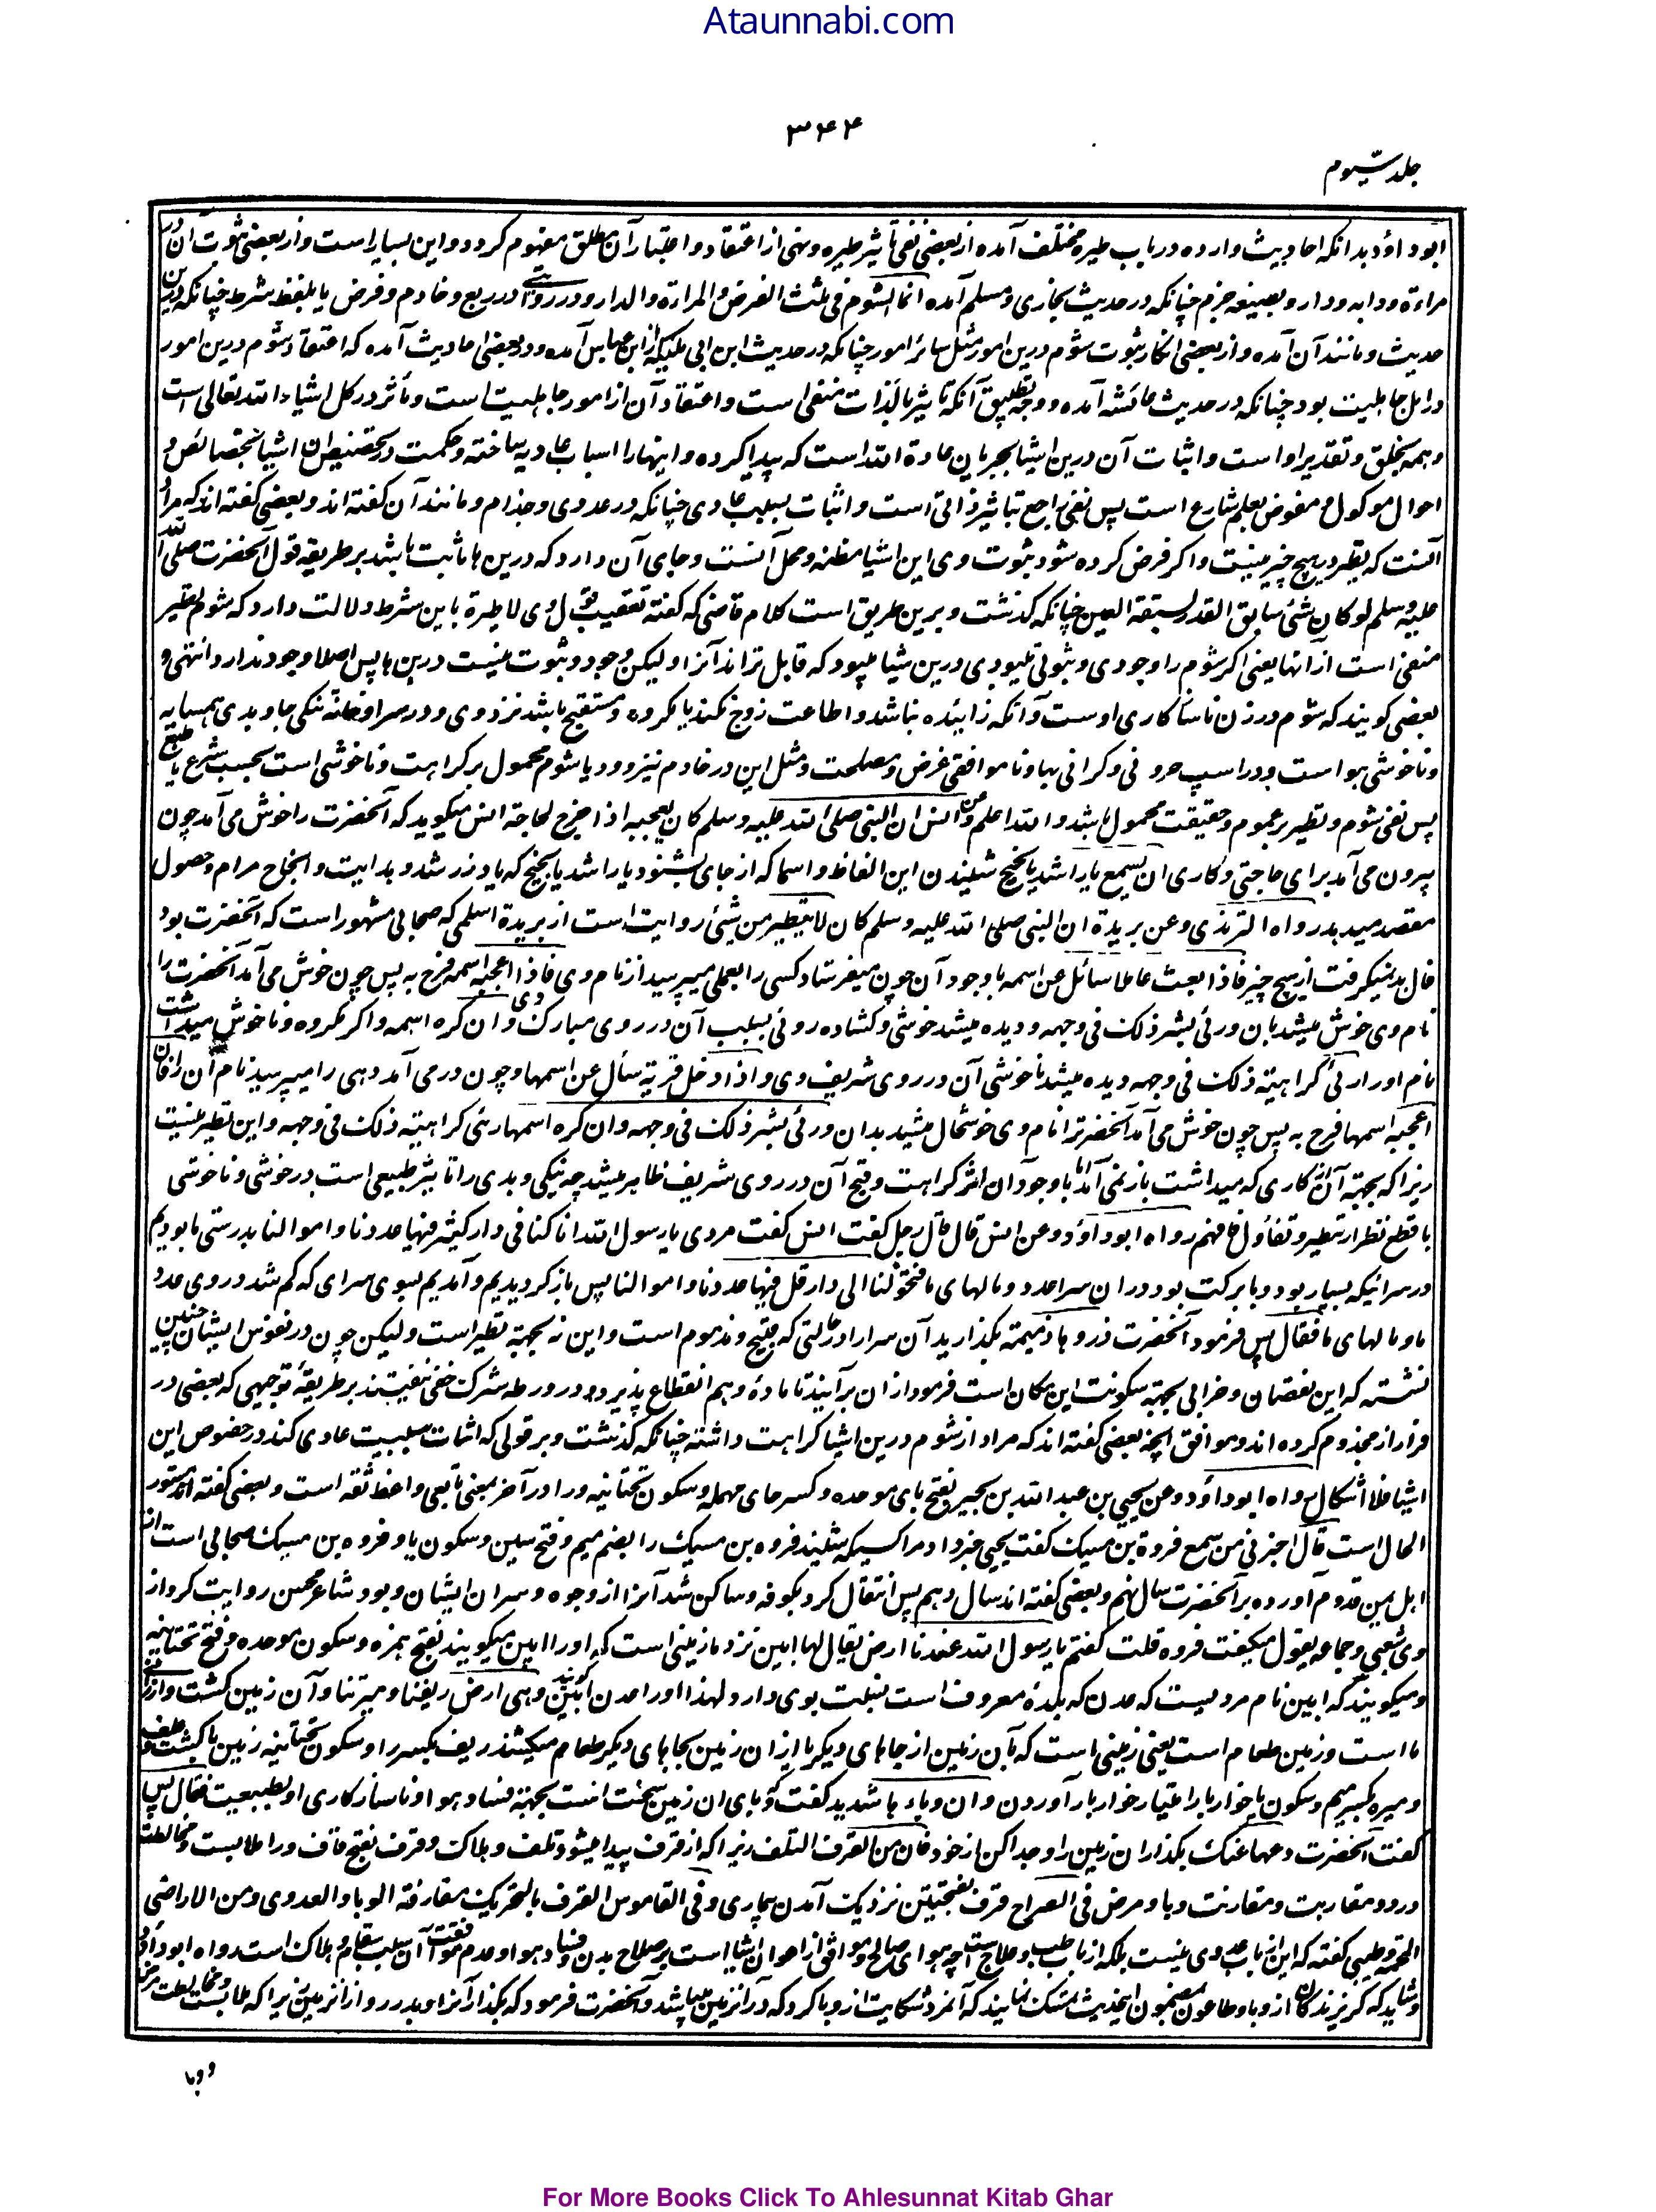 Ataunnabi.com
۳۴۴
جلد سیوم
ابوداؤد بدانکه احادیث وارده در باب طیره مختلف آمده از بعضی نفی تاثیر طیره و نهی از اعتقاد و اعتبار آن مطلق مفهوم گردد و این بسیار است و از بعضی ثبوت آن در
مراءة و دابه و دار و بصیغه جزم چنانکه در حدیث بخاری و مسلم آمده انما الشوم فی ثلث الفرس والمراة والدار و در روایتی در ربع و خادم و فرس یا بلفظ شرط چنانکه درین
حدیث و مانند آن آمده و از بعضی انکار ثبوت شوم درین امور مثل سائر امور چنانکه در حدیث ابن ابی ملیکه از ابن عباس آمده و در بعضی احادیث آمده که اعتقاد شوم درین امور
در اهل جاهلیت بود چنانکه در حدیث عائشه آمده و وجه تطبیق آنکه تاثیر بالذات منفی است و اعتقاد آن از امور جاهلیت است و مؤثر در کل اشیاء الله تعالی است
و همه بخلق و تقدیر او است و اثبات آن درین اشیا بجریان عادة الله است که پیدا کرده و اینها را اسباب عادیه ساخته و حکمت در تخصیص این اشیا بخصائص و
احوال موکول و مفوض بعلم شارع است پس نفی راجع بتاثیر ذاتی است و اثبات بسبب عادی چنانکه در عدوی و جذام و مانند آن گفته اند و بعضی گفته اند که مراد
آنست که تطیر در هیچ چیز نیست و اگر فرض کرده شود ثبوت وی این اشیا مظنه و محل آنست و جای آن دارد که درین ها ثابت باشد بر طریقه قول آنحضرت صلی الله
علیه وسلم لو کان شئ سابق القدر لسبقه العین چنانکه گذشت و برین طریق است کلام قاضی که گفته تعقیب قول وی لا طیرة باین شرط دلالت دارد که شوم تطیر
منفی است از آنها یعنی اگر شوم را وجودی و ثبوتی میبودی درین اشیا میبود که قابل تر اند آنرا و لیکن وجود و ثبوت نیست درین ها پس اصلا وجود ندارد انتهی و
بعضی گویند که شوم در زن ناسازگاری اوست و آنکه زاینده نباشد و اطاعت زوج نکند یا مکروه و مستقبح باشد نزد وی و در سرا و خانه تنگی جا و بدی همسایه
و ناخوشی هوا است و در اسپ حرونی و گرانی بها و ناموافقی غرض و مصلحت و مثل این در خادم نیز و در یا شوم محمول بر کراهت و ناخوشی است بحسب شرع یا طبع
پس نفی شوم و تطیر بر عموم و حقیقت محمول باشد والله اعلم وعن انس ان النبی صلی الله علیه وسلم کان یعجبه اذا خرج لحاجة انس میگوید که آنحضرت را خوش می آمد چون
بیرون می آمد برای حاجتی و کاری ان یسمع یا راشد یا نجیح شنیدن این الفاظ و اسما که از جای بشنود یا راشد یا نجیح که یاد از رشد و هدایت و انجاح مرام و حصول
مقصد میدهد رواه الترمذی وعن بریدة ان النبی صلی الله علیه وسلم کان لا یتطیر من شئ روایت است از بریدة اسلمی که صحابی مشهور است که آنحضرت بود
فال بد نمیگرفت از هیچ چیز فاذا بعث عاملا سائل عن اسمه با وجود آن چون میفرستاد کسی را بعملی میپرسید از نام وی فاذا اعجبه اسمه فرح به پس چون خوش می آمد آنحضرت را
نام وی خوش میشد بآن ورئی بشر ذلک فی وجهه و دیده میشد خوشی و کشاده روئی بسبب آن در روی مبارک وی وان کره اسمه و اگر مکروه و ناخوش میداشت
نام او را رئی کراهیة ذلک فی وجهه دیده میشد ناخوشی آن در روی شریف وی واذا دخل قریة سأل عن اسمها و چون در می آمد دهی را میپرسید نام آن را فان
اعجبه اسمها فرح به پس چون خوش می آمد آنحضرت را نام وی خوشحال میشد بدان ورئی بشر ذلک فی وجهه وان کره اسمها رئی کراهیة ذلک فی وجهه و این تطیر نیست
زیرا که بجهة آن از کاری که میداشت باز نمی آمد اما با وجود آن اثر کراهت و قبح آن در روی شریف ظاهر میشد چه نیکی و بدی را تاثیر طبیعی است در خوشی و ناخوشی
با قطع نظر از تطیر و تفاؤل فافهم رواه ابوداؤد وعن انس قال قال رجل گفت انس گفت مردی یا رسول الله انا کنا فی دار کثیر فیها عددنا واموالنا بدرستی ما بودیم
در سرائیکه بسیار بود و با برکت بود در ان سرا عدد و مالهای ما فتحولنا الی دار قل فیها عددنا واموالنا پس باز گردیدیم و آمدیم بسوی سرای که کم شد در وی عدد
ما و مالهای ما فقال پس فرمود آنحضرت ذروها ذمیمة بگذارید آن سرا را در حالتی که قبیح و مذموم است و این نه بجهة تطیر است و لیکن چون در نفوس ایشان چنین
نشسته که این نقصان و خرابی بجهة سکونت این مکان است فرمود از ان برآیند تا مادۀ وهم انقطاع پذیرد و در ورطه شرک خفی نیفتند بر طریقۀ توجیهی که بعضی در
فرار از مجذوم کرده اند و موافق آنچه بعضی گفته اند که مراد از شوم درین اشیا کراهت داشته چنانکه گذشت و بر قولی که اثبات سببیت عادی کند در خصوص این
اشیا فلا اشکال رواه ابوداؤد وعن یحیی بن عبد الله بن بحیر بفتح بای موحده و کسر حای مهمله و سکون تحتانیه و را در آخر یمنی تابعی واعظ ثقه است و بعضی گفته اند مستور
الحال است قال اخبرنی من سمع فروة بن مسیک گفت یحیی خبر داد مرا کسیکه شنید فروه بن مسیک را بضم میم و فتح سین و سکون یا و فروه بن مسیک صحابی است از
اهل یمن قدوم آورده بر آنحضرت سال نهم و بعضی گفته اند سال دهم پس انتقال کرد بکوفه و ساکن شد آنرا از وجوه و سران ایشان و بود شاعر محسن روایت کرد از
وی شعبی و جماعه یقول میگفت فروه قلت گفتم یا رسول الله عندنا ارض یقال لها ابین نزد ما زمینی است که او را ابین میگویند بفتح همزه و سکون موحده و فتح تحتانیه
و میگویند که ابین نام مردیست که عدن که بلدۀ معروف است نسبت بوی دارد و لهذا او را عدن ابین گویند وهی ارض ریفنا ومیرتنا و آن زمین کشت و
ما است و زمین طعام است یعنی زمینی است که بآن زمین از جاهای دیگر یا از ان زمین بجاهای دیگر طعام میکشند ریف بکسر را و سکون تحتانیه زمین با کشت و علف
و میره بکسر میم و سکون یا خواربار امتیار خواربار آوردن وان وباء ها شدید گفت که وبای ان زمین سخت است بجهة فساد هوا و ناسازکاری او بطبیعت فقال پس
گفت آنحضرت دعها عنک بگذار ان زمین را و جدا کن از خود فان من القرف التلف زیرا که از قرف پیدا میشود تلف و هلاکت و قرف بفتح قاف و را ملابست و مخالطت
درد و مقاربت و مقارنت وبا و مرض فی الصراح قرف بفتحتین نزدیک آمدن بیماری و فی القاموس القرف بالتحریک مقارفة الوبا والعدوی ومن الاراضی
المحمة و طیبی گفته که این از باب عدوی نیست بلکه از باب طب و علاج است چه هوای صالح و موافق از اعون اشیا است بر صلاح بدن و فساد هوا و عدم موافقت آن سبب سقام و هلاک است رواه ابوداؤد
و شاید که گریزندگان از وبا و طاعون بمضمون این حدیث تمسک نمایند که آنمرد شکایت از وبا کرد که در آنزمین میباشد و آنحضرت فرمود که بگذار آنرا و بدر رو از انزمین زیرا که ملابست و مخالطت مرض
و وبا
For More Books Click To Ahlesunnat Kitab Ghar